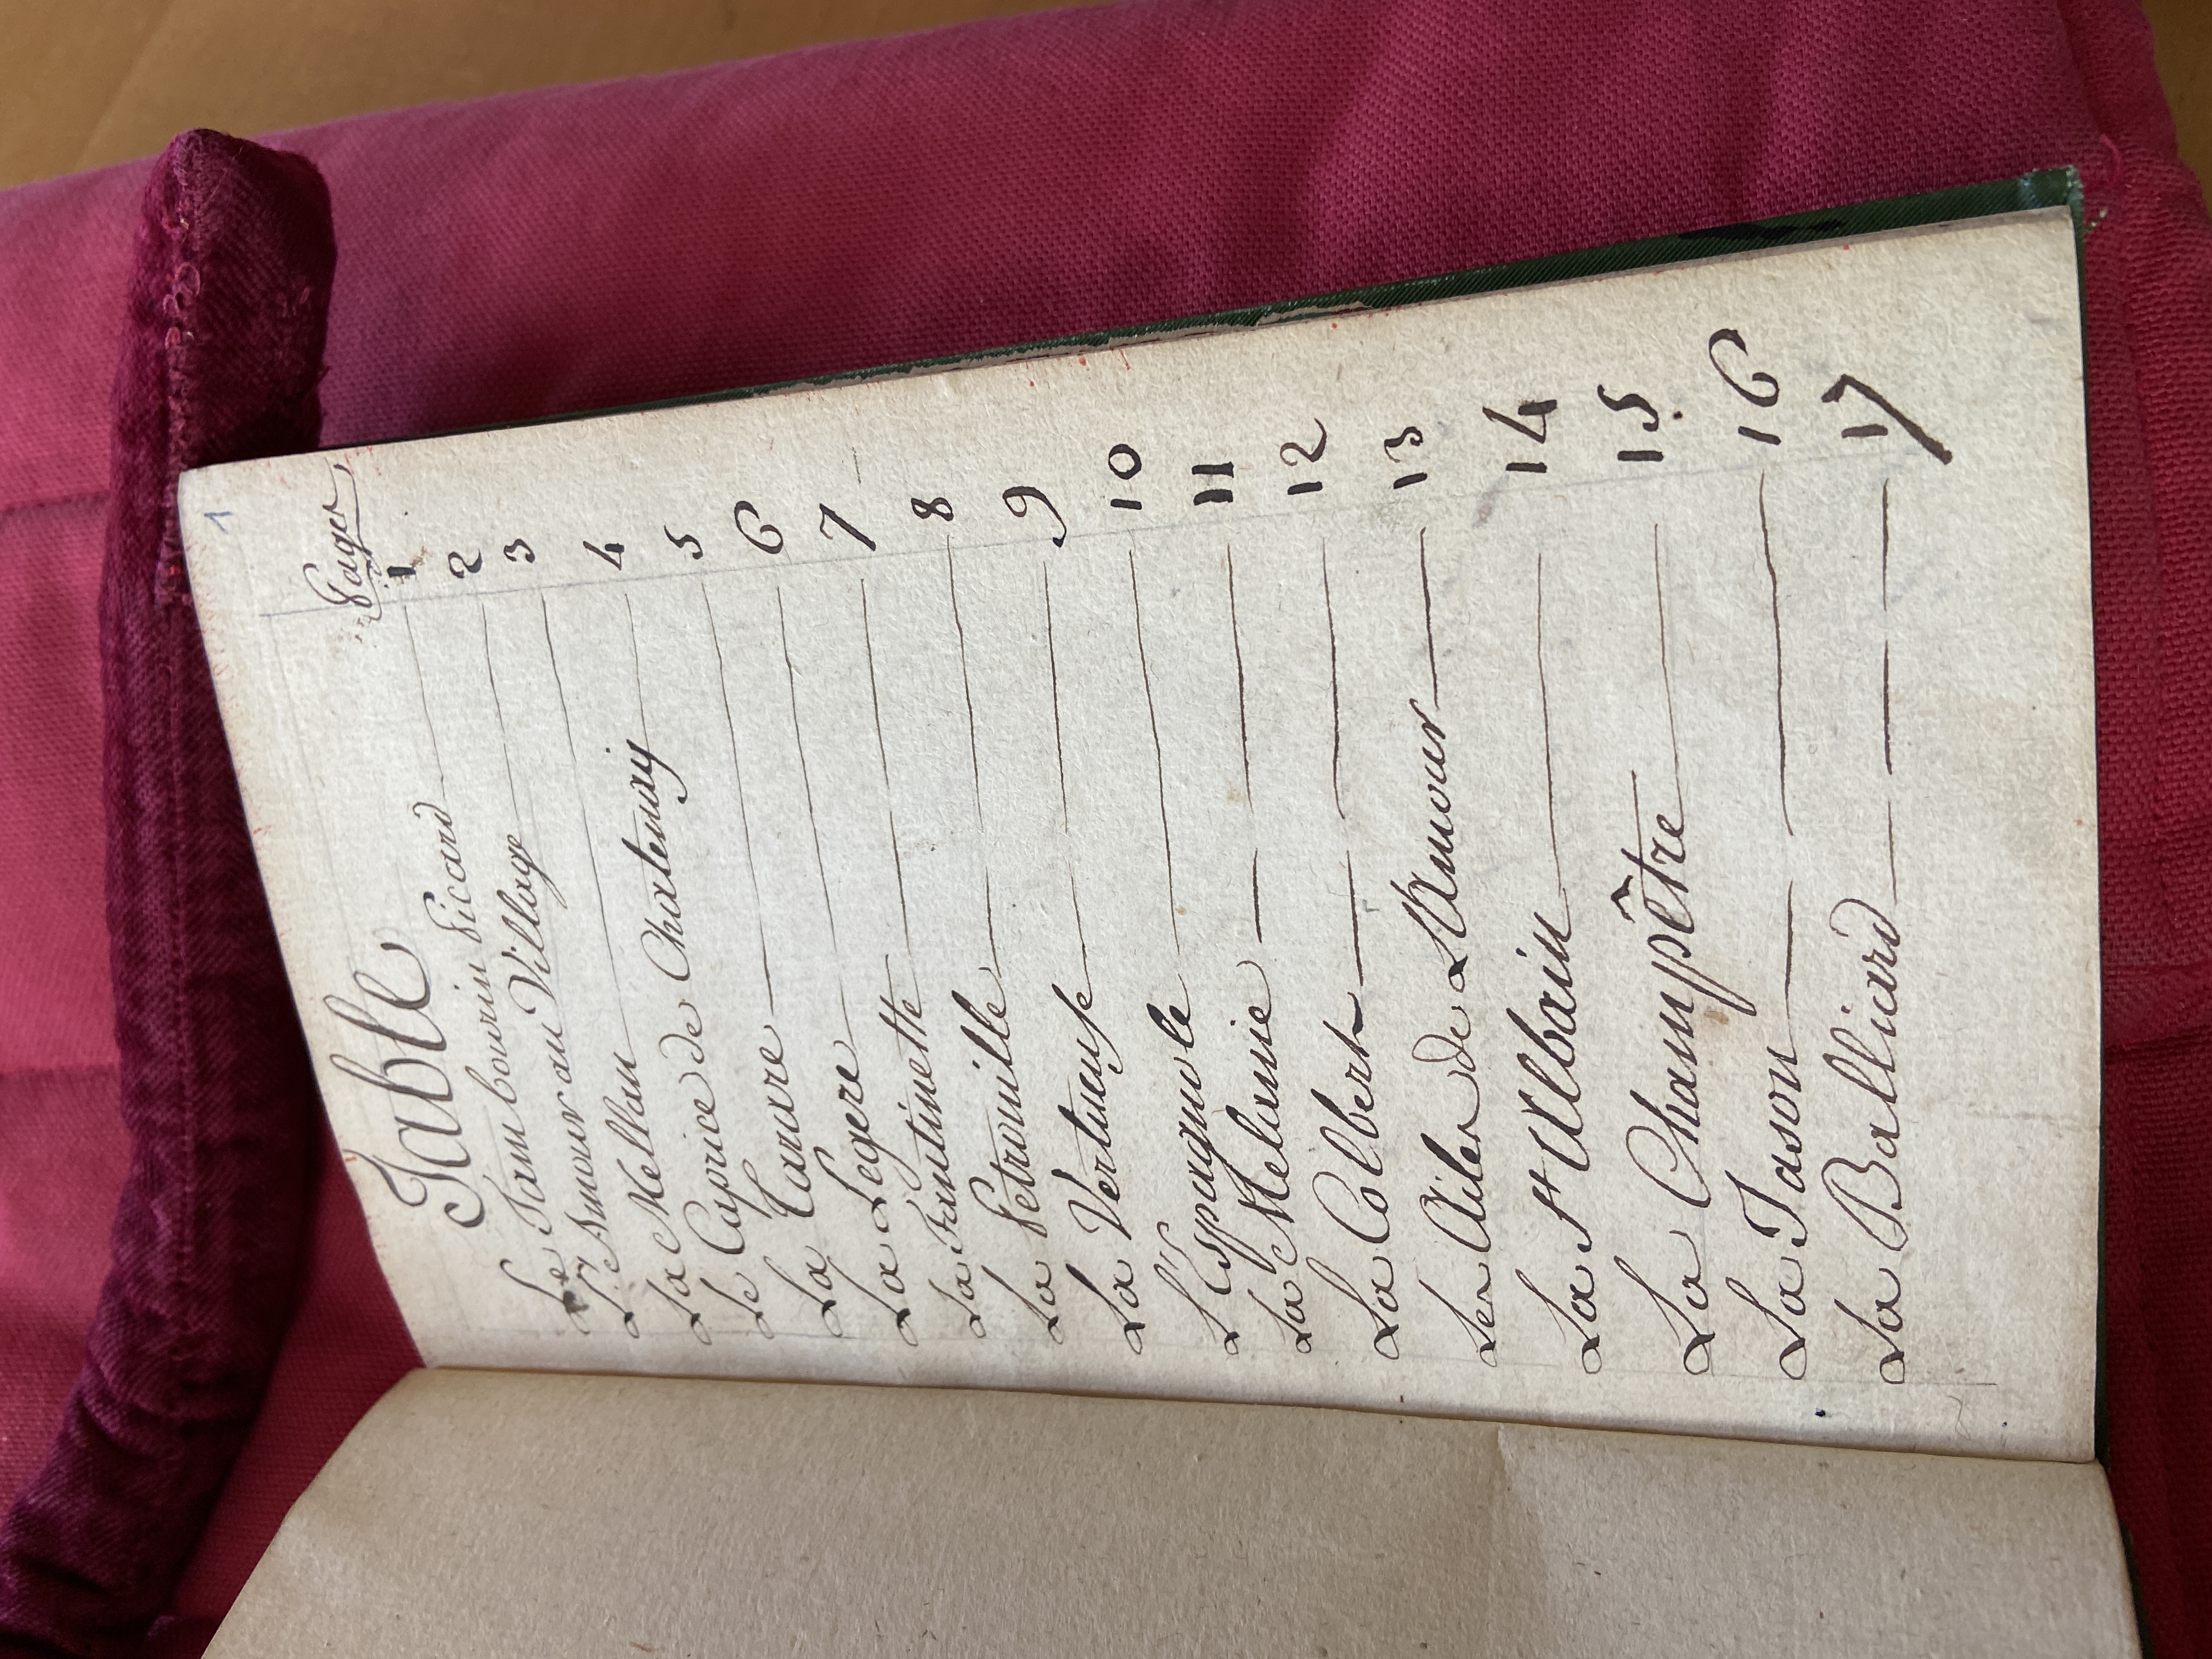 1
Table
Pages
Le Tambourin Picard 1
L'Amour au Village 2
La Mellan 3
Le Caprice de Chatenay 4
La 5
La Legere 6
La Fantinette 7
La Petronille 8
La Vertueuse 9
L'Espagnole 10
La Melanie 11
La Colbert 12
Les Ailes de L'Amour 13
La St Albain 14
La Champêtre 15
La Jason 16
La Balliard 17